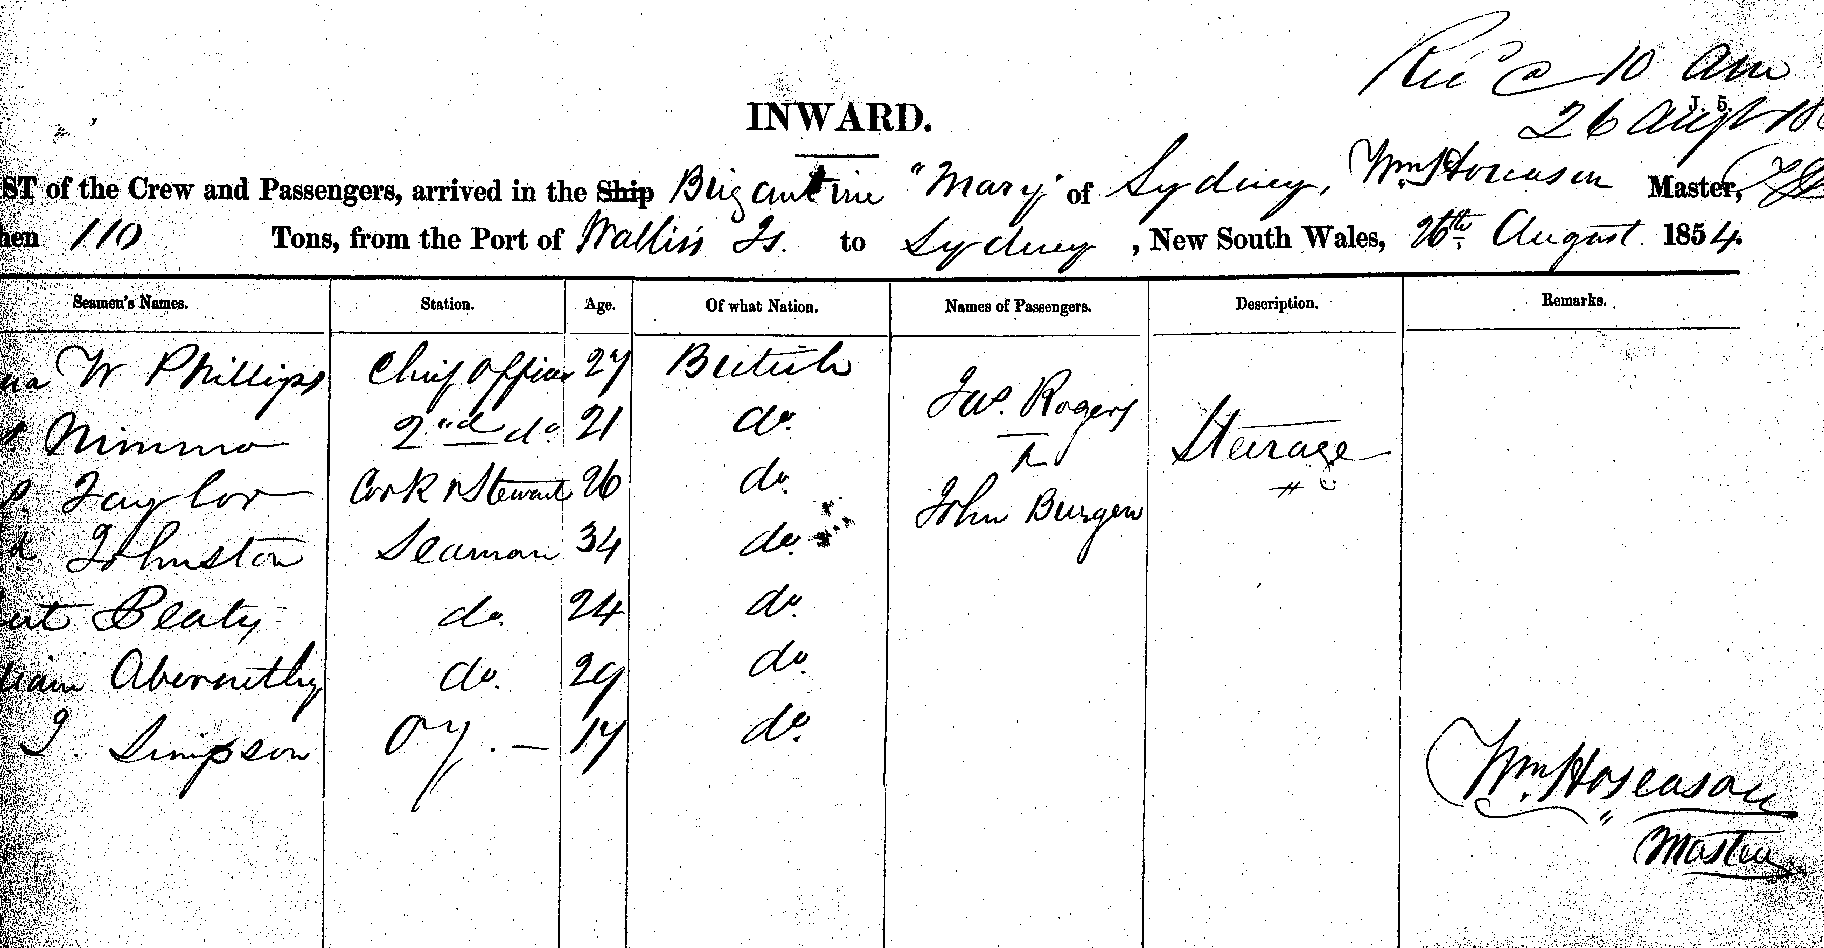 Rec'd 10 am
J. 5.
26 Augt 18
INWARD.
ST of the Crew and Passengers, arrived in the Ship Brigantine "Mary" of Sydney, Wm Hoseason Master,
hen 110 Tons, from the Port of Wallis's Is. to Sydney, New South Wales, 26th August 1854.
Seamen's Names. Station. Age. Of what Nation. Names of Passengers. Description. Remarks.
W Phillips Chief Officer 27 British
Jas. Rogers
Nimmo 2nd do. 21 do.
Steerage
Taylor Cook & Steward 26 do.
John Burgen
Johnston Seaman 34 do.
Beaty do. 24 do.
liam Abernethy do. 29 do.
J. Simpson Oy. — 17 do.
Wm. Hoseason
Master